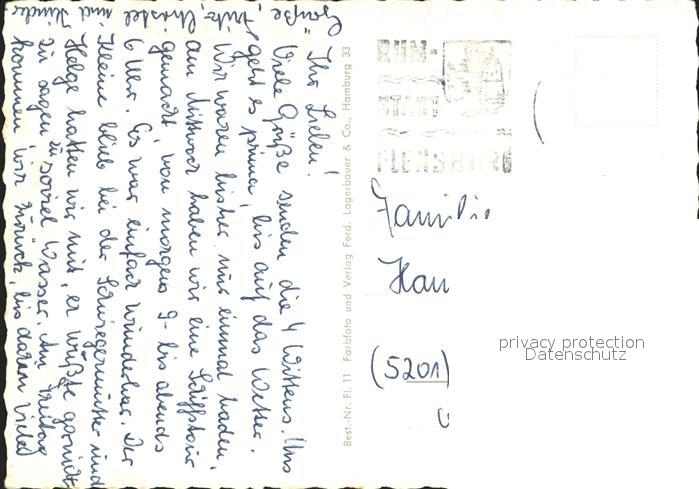 Ihr Lieben!
Viele Grüße senden die 4 Wittens. Uns
geht es prima, bis auf das Wetter.
Wir waren bisher nur einmal baden.
Am Mittwoch haben wir eine Schiffstour
gemacht, von morgens 9 - bis abends
6 Uhr. Es war einfach wunderbar. Der
Kleine blieb bei der Schwiegermutter und
Helge hatten wir mit, er wußte garnicht
zu sagen zu soviel Wasser. Am Freitag
kommen wir zurück, bis dahin viele
Grüße
Fritz, Christel und Kinder
Best.-Nr. Fl. 11 Farbfoto und Verlag Ferd. Lagerbauer & Co., Hamburg 33
RUM-
STADT
FLENSBURG
Familie
Hau
(5201)
privacy protection
Datenschutz